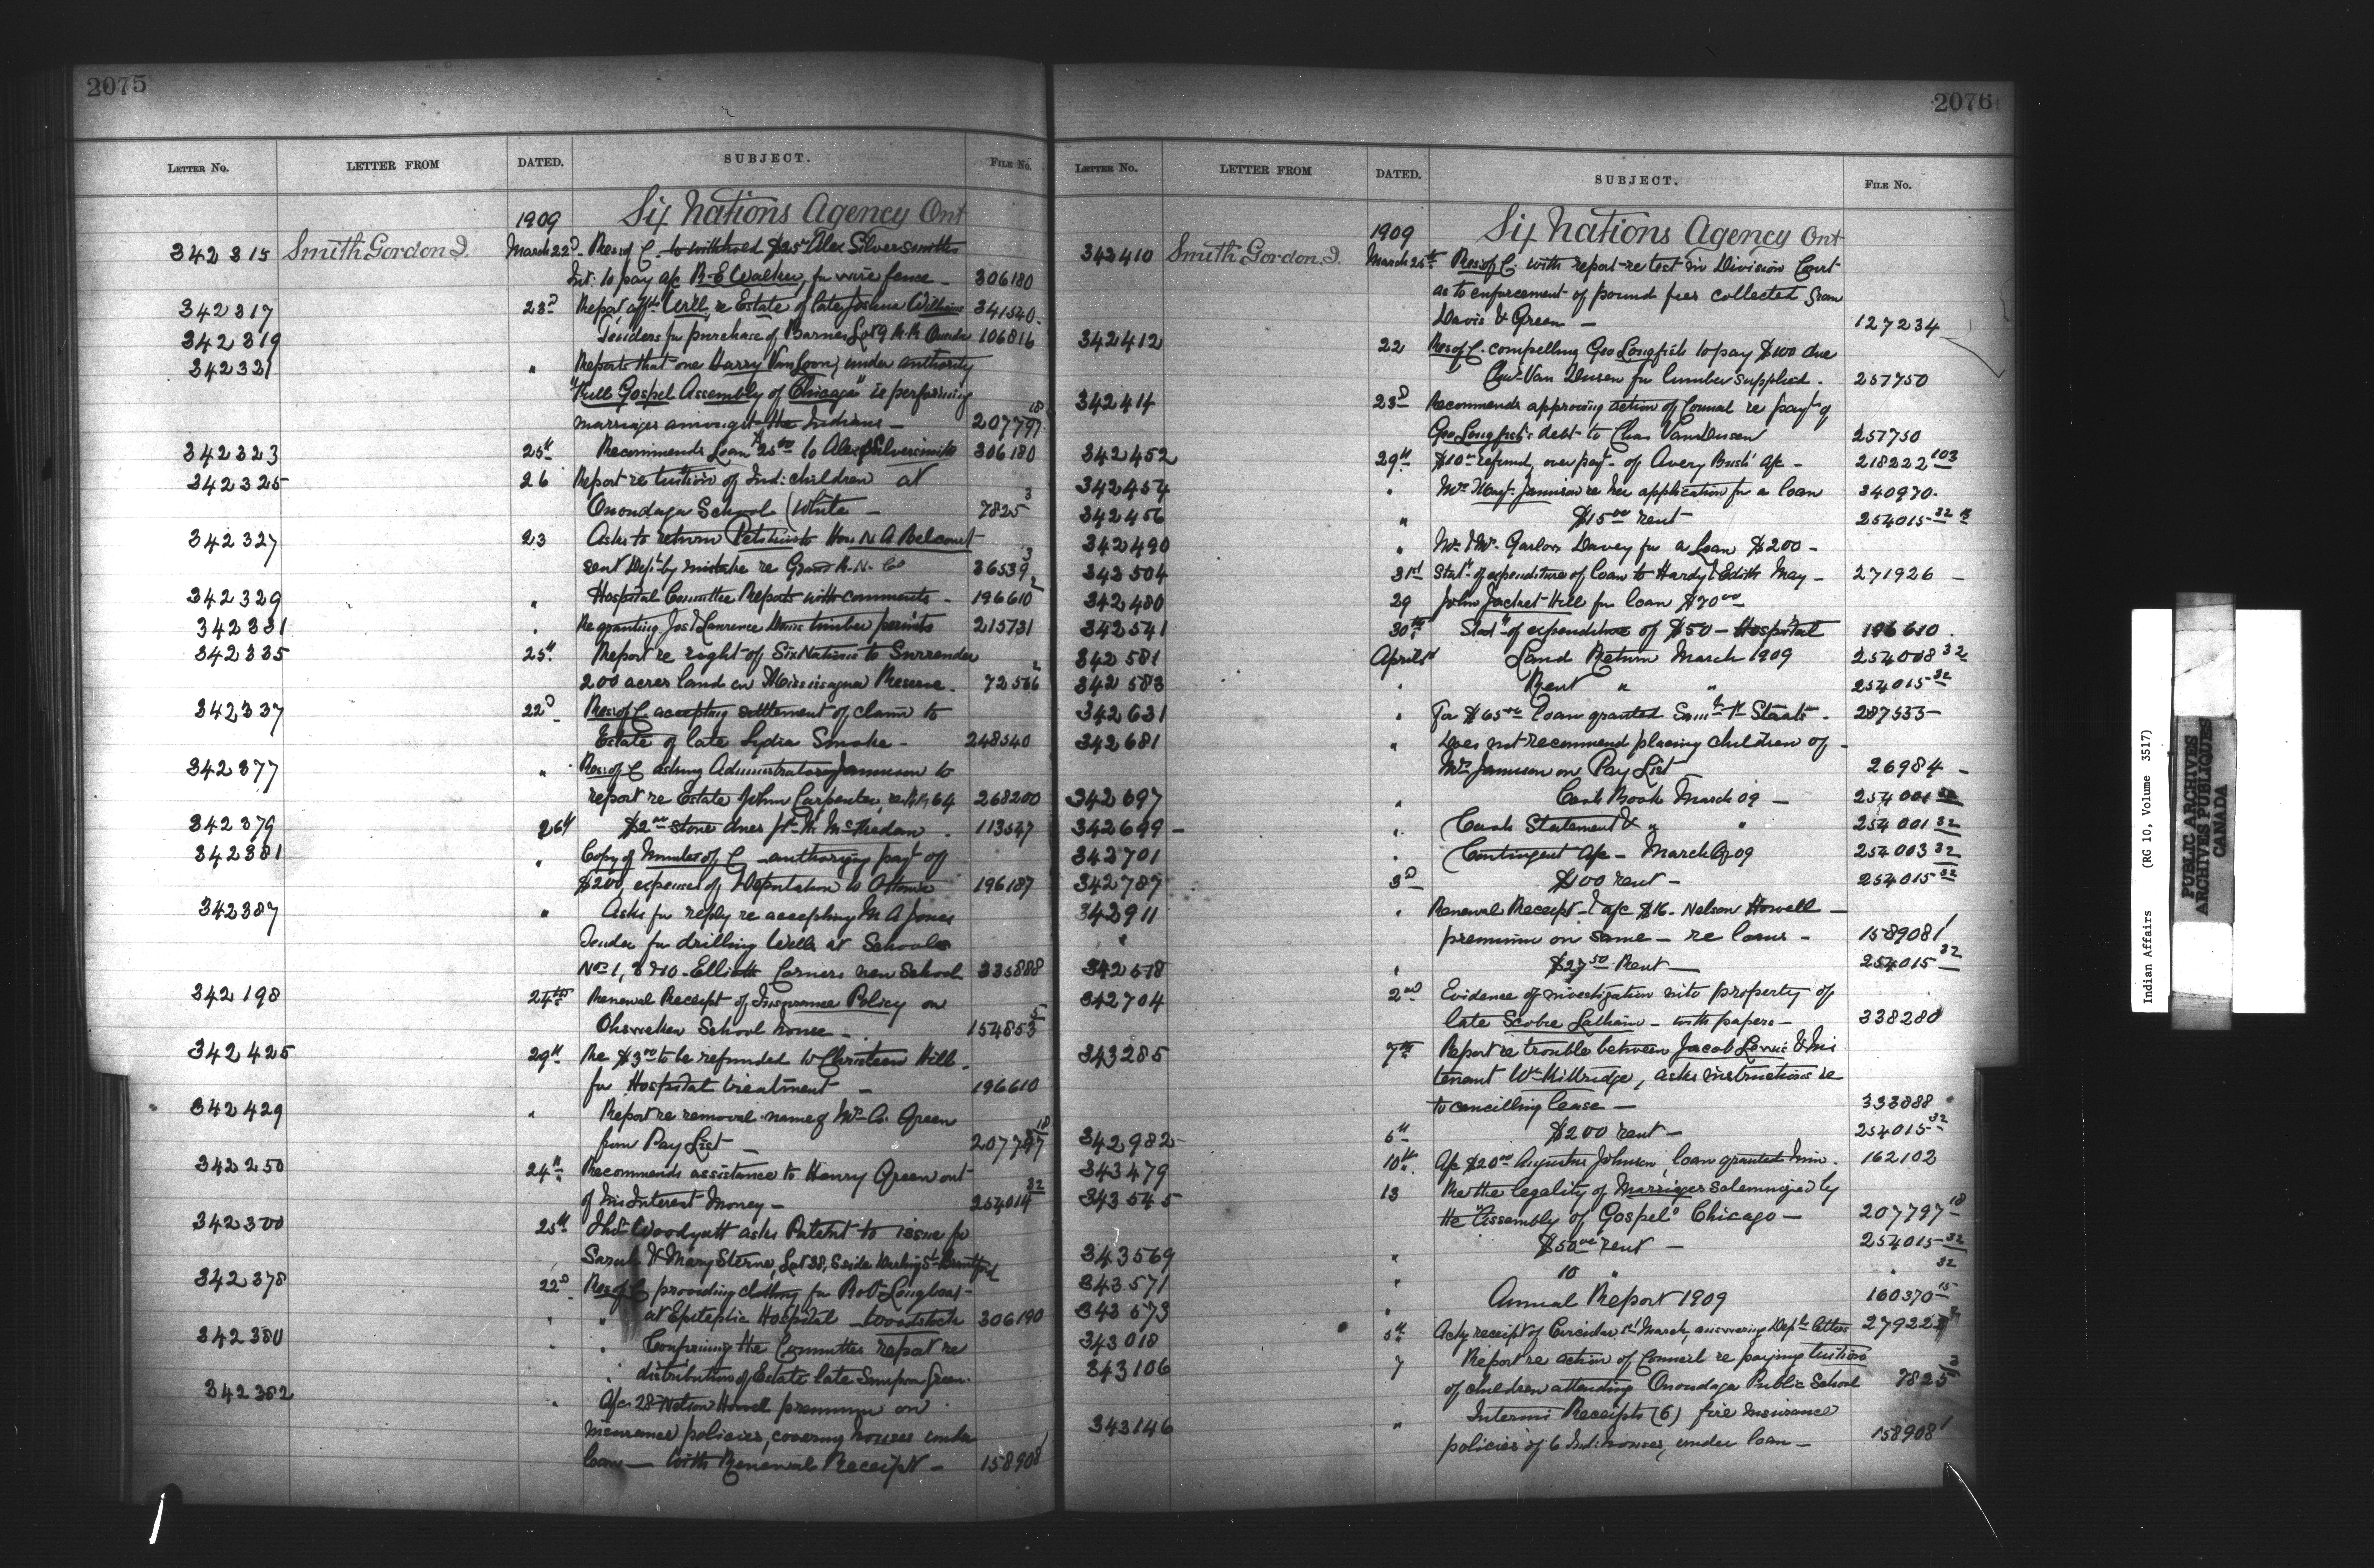 2075
LETTER No. LETTER FROM DATED. SUBJECT. FILE No.
1909 Six Nations Agency Ont
342315 Smith Gordon J. March 22d Res of C. to withhold $25 Alex Silversmiths
Int. to pay a/c R.E Walker, for wire fence 306180
342317 23d Report, affts Will, re Estate of late Joshua Williams 341540
342319 Tenders for purchase of Barnes Lot 9 106816
342321 " Reports that one Harry VanLoon, under authority
"Full Gospel Assembly of Chicago" is performing
marriages amongst the Indians - 207797 18
342323 25th Recommends Loan $25.00 to Alex Silversmith 306180
342325 26 Report re tuition of Ind: children at
Onondaga School (White - 7825 3
342327 23 Asks to return Petition to Hon N A Belcourt
sent Dept. by mistake re Grand R. N. Co 36539 3
342329 " Hospital Committee Reports with comments - 196610 2
342331 " Re granting Jos & Lawrence timber permits 215731
342335 25th Report re right of Six Nations to Surrender
200 acres land on Mississagua Reserve. 72566 2
342337 22d Res of C accepting settlement of claim to
Estate of late Lydia Smoke - 248540
342377 " Res of C asking Administrator Jamieson to
report re Estate John Carpenter, 268200
342379 26th $2.00 stone dues 113547
342381 " Copy of Minutes of C - authorizing payt of
$200, expenses of Deputation to Ottawa 196187
342387 " Asks for reply re accepting M A Jones
Tender for drilling Wells at Schools
Nos 1, 3 & 10 - Elliott Corners new School 335888
342198 24th Renewal Receipt of Insurance Policy on
Ohsweken School house - 154853 5
342425 29th Re $3.00 to be refunded to Christeen Hill
for Hospital treatment - 196610
342429 " Report re removal name of Mrs C. Green
from Pay List - 207797 18
342250 24th Recommends assistance to Henry Green out
of his Interest Money - 254014 32
342300 25th Thos. Woodyatt asks Patent to issue for
Sarah & Mary Sterne, Lot 38, S side Darling St Brantford
342378 22d Res of C providing clothing for Robt Longboat
" " at Epileptic Hospital - Woodstock 306190
342380 " Confirming the Committee report re
" distribution of Estate late Simpson Green.
342382 " A/c 28 Nelson Howell premium on
insurance policies, covering houses under
loan - with Renewal Receipt - 158908 1
2076
LETTER No. LETTER FROM DATED. SUBJECT. FILE No.
1909 Six Nations Agency Ont
342410 Smith Gordon J. March 25th Res of C. with report re test in Division Court
as to enforcement of pound fees collected from
Davis & Green - 127234
342412 22 Res of C. compelling Geo Longfish to pay $100 due
Chas Van Dusen for lumber supplied. 257750
342414 23d Recommends approving action of Council re payt of
Geo Longfish's debt to Chas VanDusen 257750
342452 29th $10.00 refund, over payt of Avery Bush a/c - 218222 103
342454 " Mrs Margt. Jamieson re her application for a loan 340970
342456 " $15.00 rent 254015 32
342490 " Mr & Mrs. Garlow Davey for a Loan $200 -
342504 31st Statt of expenditure of loan to Hardy & Edith May - 271926 -
342480 29 John Jacket Hill for loan $70.00
342541 30th Statt of expenditure of $50 - Hospital 196610
342581 April 1st Land Return March 1909 254008 32
342583 " Rent " " 254015 32
342631 " For $65.00 loan granted Saml Staats. 287535
342681 " Does not recommend placing children of
Mrs Jamieson on Pay List 26984 -
342697 " Cash Book March 09 - 254001 32
342699 - " Cash Statement & " " 254001 32
342701 " Contingent a/c - March 09 254003 32
342787 3d $100 rent - 254015 32
342911 " Renewal Receipt & a/c $16. Nelson Howell -
" premium on same - re loans - 158908 1
342578 " $27.50 Rent - 254015 32
342704 2nd Evidence of investigation into property of
late Scobie Latham - with papers - 338280
343285 7th Report re trouble between Jacob Lewis & his
tenant Wm Kittridge, asks instructions re
to cancilling lease - 333888
342982 6th $200 rent - 254015 32
343479 10th A/c $20.00 Augustus Johnson, loan granted him. 162102
343545 13 Re the legality of Marriages solemnized by
the "Assembly of Gospel" Chicago - 207797 18
343569 " $50.00 rent - 254015 32
343571 " 10 " " 32
343573 " Annual Report 1909 160370 15
343018 5th Ackg receipt of Circular 1st March, answering Depts letters 279222
343106 7 Report re action of Council re paying tuition
of children attending Onondaga Public School 7825 3
343146 " Interim Receipts (6) fire Insurance
policies of 6 Ind: houses, under loan - 158908 1
Indian Affairs (RG 10, Volume 3517)
PUBLIC ARCHIVES
ARCHIVES PUBLIQUES
CANADA